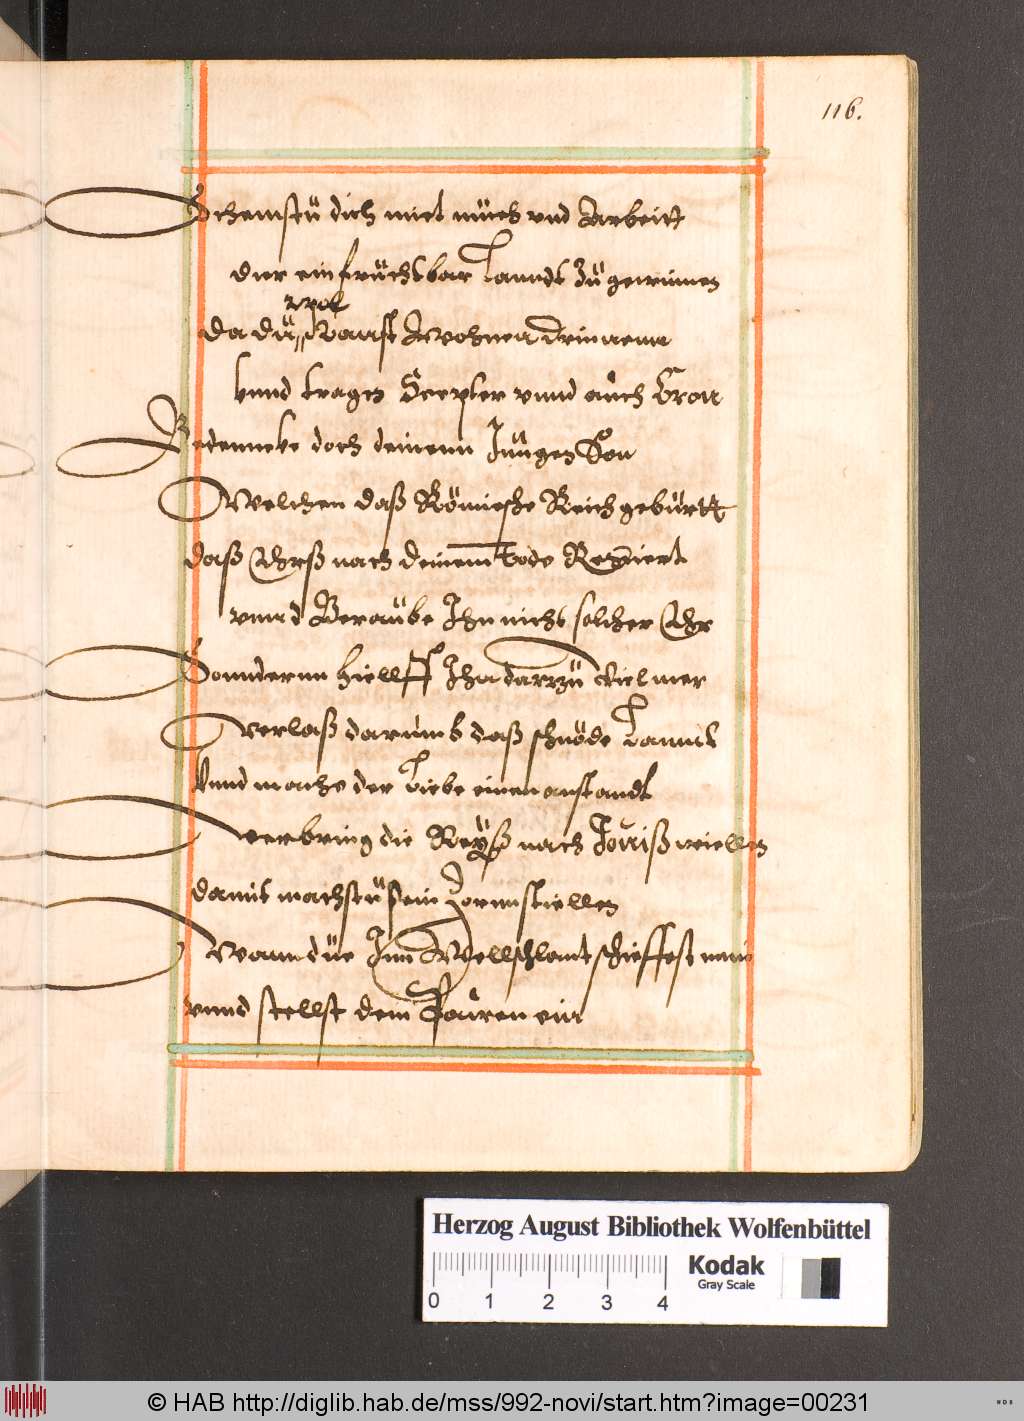 116.
Schemstu dich mict mües vnd Arbeitt
dier ein früchtbar Lanndt Zü gewinnen
wol
da dü kanst Wohnen drinnenn
vnnd tragen Scepter vnnd aüch Cron
Bedenncke doch deinenn Jüngen Son
Welchen daß Römische Reich gebürtt
daß Ehrß nach deinem Tode Regiert
vnnd Beraübe Ihn nicht solcher Ehr
Sonndernn hielff Ihn darzü viel mer
verlaß darümb daß schnöde Lanndt
Vnnd mache der Liebe einen anstandt
verbring die Reÿß nach Joviß wiellen
damit machstü sein Zornn stiellen
Wann düe Inn Wellschlant schieffest nain
vnnd stellst dem Traüren ein
Herzog August Bibliothek Wolfenbüttel
Kodak
Gray Scale
0 1 2 3 4
© HAB http://diglib.hab.de/mss/992-novi/start.htm?image=00231